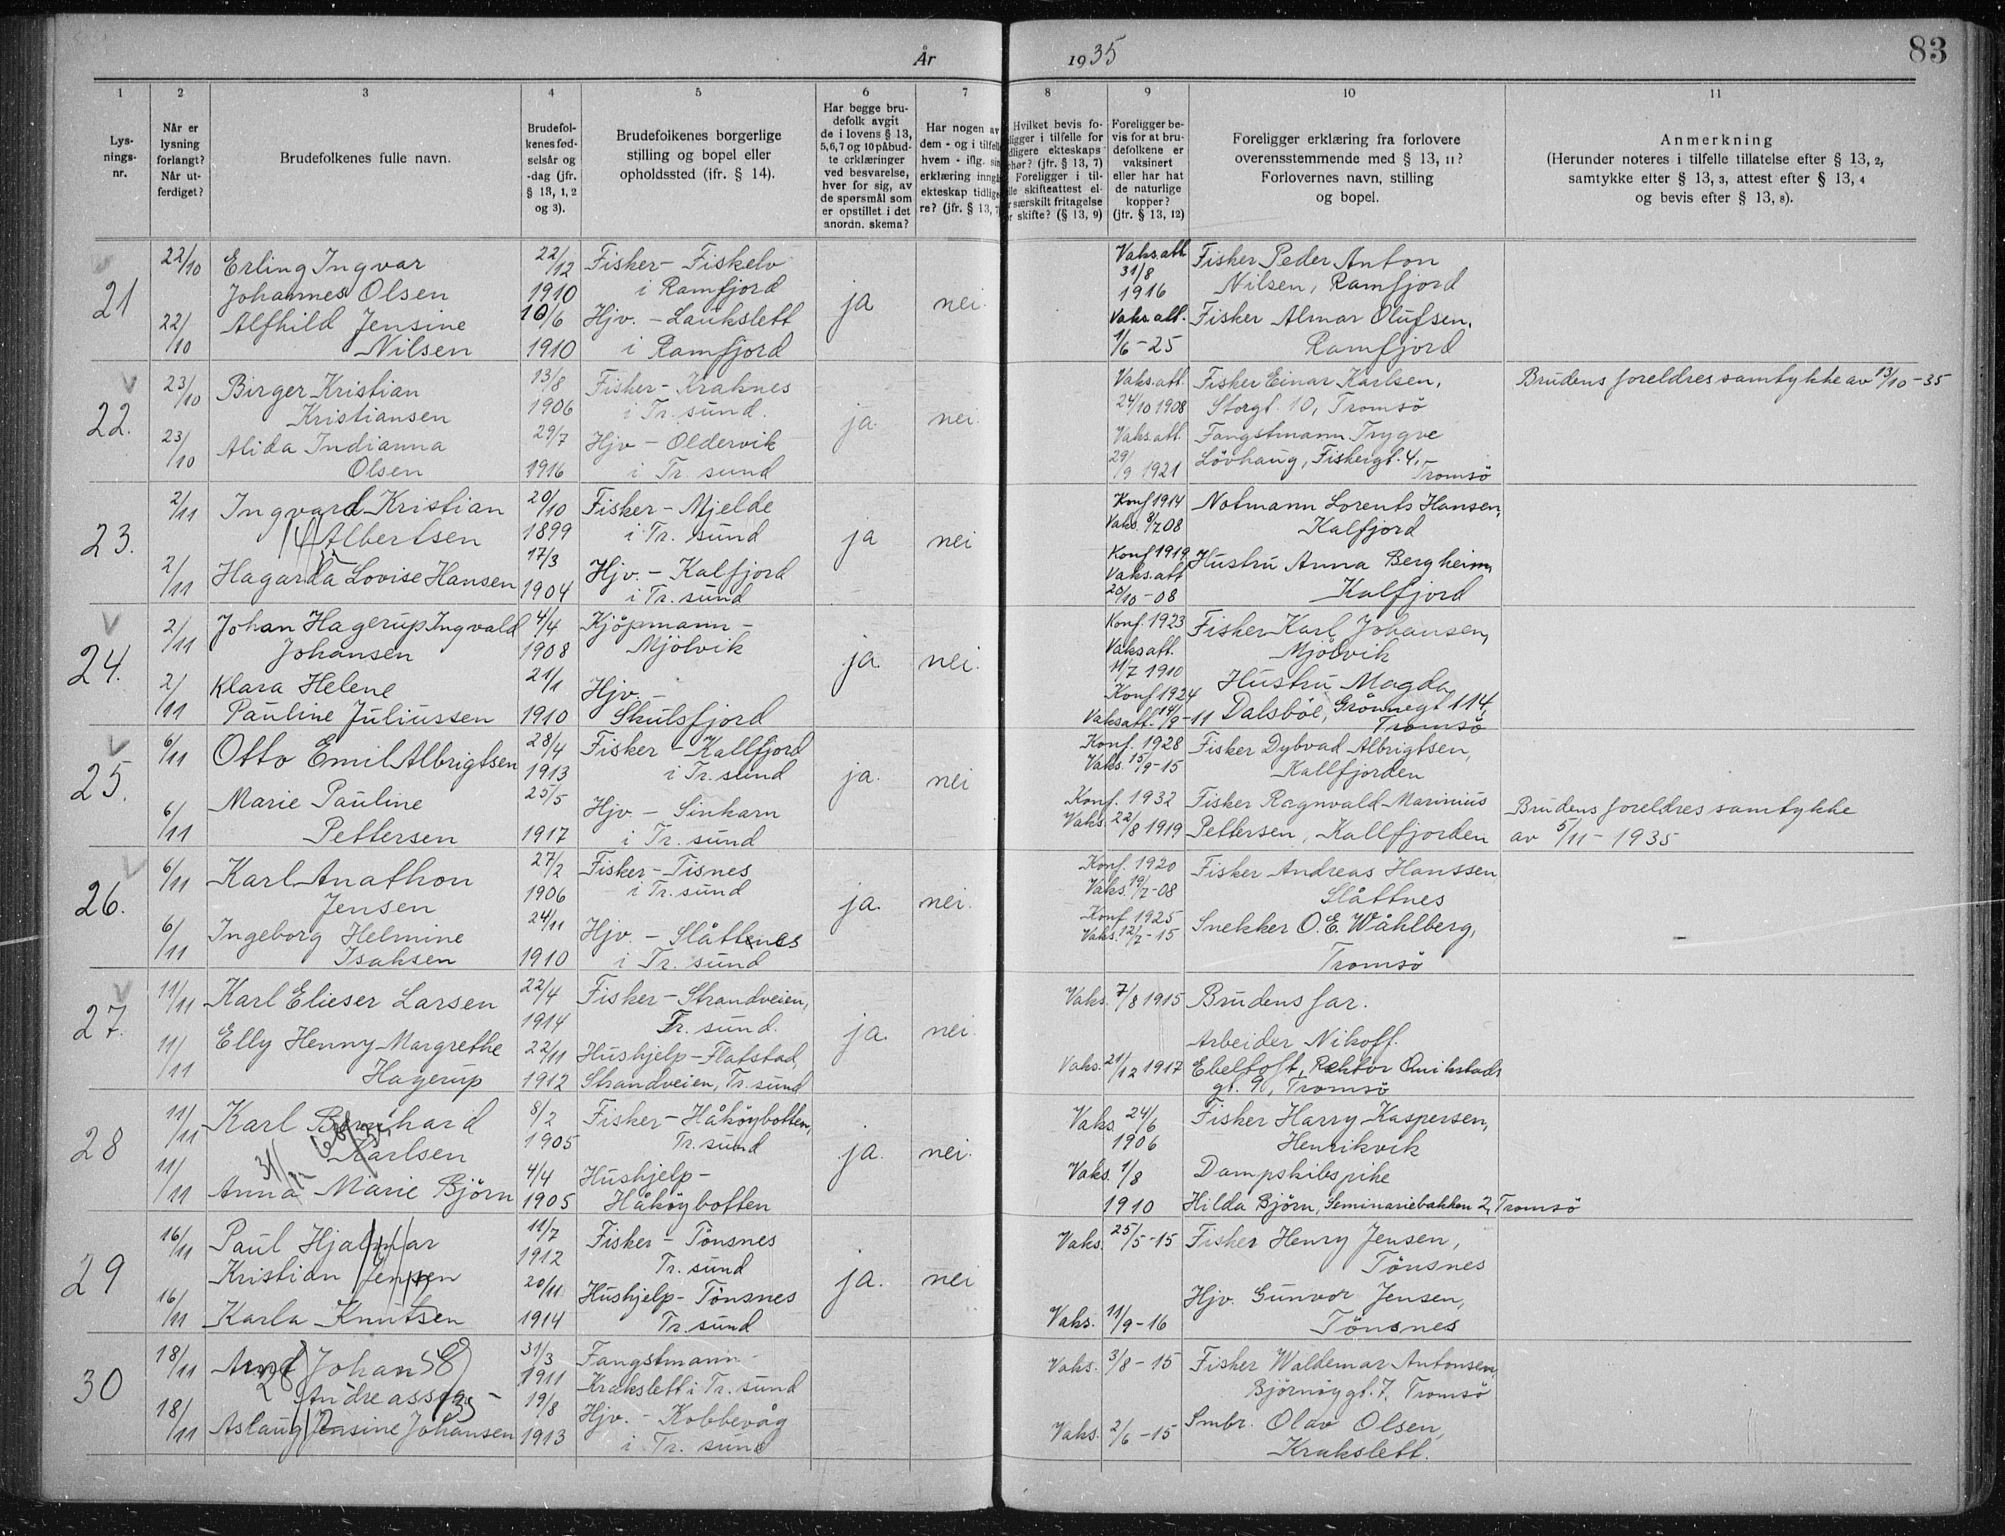 År 1935
83
1
2
3
4
5
6
7
8
9
10
11
Lys-
nings-
nr.
Når er
lysning
forlangt?
Når ut-
ferdiget?
Brudefolkenes fulle navn.
Brudefol-
kenes fød-
selsår og
-dag (jfr.
§ 13, 1, 2
og 3).
Brudefolkenes borgerlige
stilling og bopel eller
opholdssted (ifr. § 14).
Har begge bru-
defolk avgit
de i lovens § 13,
5,6,7 og 10 påbud-
te erklæringer
ved besvarelse,
hver for sig, av
de spørsmål som
er opstillet i det
anordn. skema?
Har nogen av
dem - og i tilfelle
hvem - iflg. sin
erklæring inngå
ekteskap tidlige
re? (jfr. § 13, 7
Hvilket bevis fo-
ligger i tilfelle for
dligere ekteskaps
hør? (jfr. § 13, 7)
Foreligger i til-
lle skifteattest el-
r særskilt fritagelse
r skifte? (§ 13, 9)
Foreligger be-
vis for at bru-
defolkene er
vaksinert
eller har hat
de naturlige
kopper?
(jfr. § 13, 12)
Foreligger erklæring fra forlovere
overensstemmende med § 13, 11?
Forlovernes navn, stilling
og bopel.
Anmerkning
(Herunder noteres i tilfelle tillatelse efter § 13, 2,
samtykke efter § 13, 3, attest efter § 13, 4
og bevis efter § 13, 8).
21
22/10 Erling Ingvar 22/12 Fisker - Fiskelv Vaks.att. Fisker Peder Anton
Johannes Olsen 1910 i Ramfjord ja nei. 31/8 1916 Nilsen, Ramfjord
22/10 Alfhild Jensine 10/6 Hjv. - Laukslett Vaks att. Fisker Almar Olufsen,
Nilsen 1910 i Ramfjord 1/6 - 25 Ramfjord
22.
23/10 Birger Kristian 13/8 Fisker - Kraknes Vaks. att. Fisker Einar Karlsen, Brudens foreldres samtykke av 13/10 - 35
Kristiansen 1906 i Tr. sund. ja. nei. 24/10 1908 Storgt. 10, Tromsö
23/10 Alida Indianna 29/7 Hjv - Oldervik Vaks. att. Fangstmann Trygve
Olsen 1916 i Tr. sund 29/9 1921 Lövhaug, Fiskergt. 4, Tromsö
23.
2/11 Ingvard Kristian 20/10 Fisker - Mjelde Konf 1914 Notmann Lorents Hansen,
Albertsen 1899 i Tr. sund ja nei Vaks. 3/7 08 Kalfjord
2/11 Hagarda Lovise Hansen 17/3 Hjv. - Kalfjord Konf 1919 Hustru Anna Bergheim,
1904 i Tr. sund Vaks. att 20/10 - 08 Kalfjord
24.
2/11 Johan Hagerup Ingvald 4/4 Kjöpmann - Konf. 1923 Fisker Karl Johansen,
Johansen 1908 Mjölvik ja. nei. Vaks att. 11/7 1910 Mjölvik
2/11 Klara Helene 21/1 Hjv. - Konf 1924 Hustru Magda
Pauline Juliussen 1910 Skulsfjord Vaks att. 14/9 - 11 Dalsböe, Grönnegt 114, Tromsö
25.
6/11 Otto Emil Albrigtsen 28/4 Fisker - Kallfjord Konf. 1928 Fisker Dybvad Albrigtsen,
1913 i Tr. sund ja. nei Vaks. 15/9 - 15 Kallfjorden
6/11 Marie Pauline 25/5 Hjv - Sinkarn Konf. 1932 Fisker Ragnvald Marinius Brudens foreldres samtykke
Pettersen 1917 i Tr. sund Vaks. 22/8 1919 Pettersen, Kallfjorden av 5/11 - 1935
26.
6/11 Karl Anathon 27/2 Fisker - Tisnes Konf. 1920 Fisker Andreas Hanssen
Jensen 1906 i Tr. sund ja. nei. Vaks. 19/7 - 08 Slåttnes
6/11 Ingeborg Helmine 24/11 Hjv. - Slåttenes Konf 1925 Snekker O. E. Wåhlberg,
Isaksen 1910 i Tr. sund Vaks. 12/7 - 15 Tromsö
27.
11/11 Karl Elieser Larsen 22/4 Fisker - Strandveien, Vaks. 7/8 1915 Brudens far.
1914 Tr. sund. ja. nei. Arbeider Nikoff.
11/11 Elly Henny Margrethe 22/11 Hushjelp - Flatstad, Vaks. 21/12 1917 Ebeltoft, Rektor Qvikstads
Hagerup 1912 Strandveien, Tr. sund gt. 9, Tromsö
28
11/11 Karl Bernhard 8/2 Fisker - Håköybotten, Vaks 24/6 Fisker Harry Kaspersen,
Karlsen 1905 Tr. sund ja. nei. 1906 Henrikvik
11/11 Anna Marie Björn 4/4 Hushjelp - Vaks. 1/8 Dampskibspike
1905 Håköybotten 1910 Hilda Björn, Seminariebakken 2, Tromsö
29
16/11 Paul Hjalmar 11/7 Fisker - Tönsnes Vaks. 25/5 - 15 Fisker Henry Jensen,
Kristian Jensen 1912 Tr. sund ja. nei Tönsnes
16/11 Karla Knutsen 20/11 Hushjelp - Tönsnes Hjv. Gunvor Jensen,
1914 Tr. sund Vaks. 11/9 - 16 Tönsnes
30
18/11 Arnt Johan 31/3 Fangstmann Vaks. 3/8 - 15 Fisker Waldemar Antonsen,
Andreassen 1911 Krakslett i Tr. sund Björnöygt. 7, Tromsö
18/11 Aslaug Jensine Johansen 19/8 Hjv. - Kobbevåg Smbr. Olav Olsen,
1913 i Tr. sund Vaks. 2/6 - 15 Krakslett.